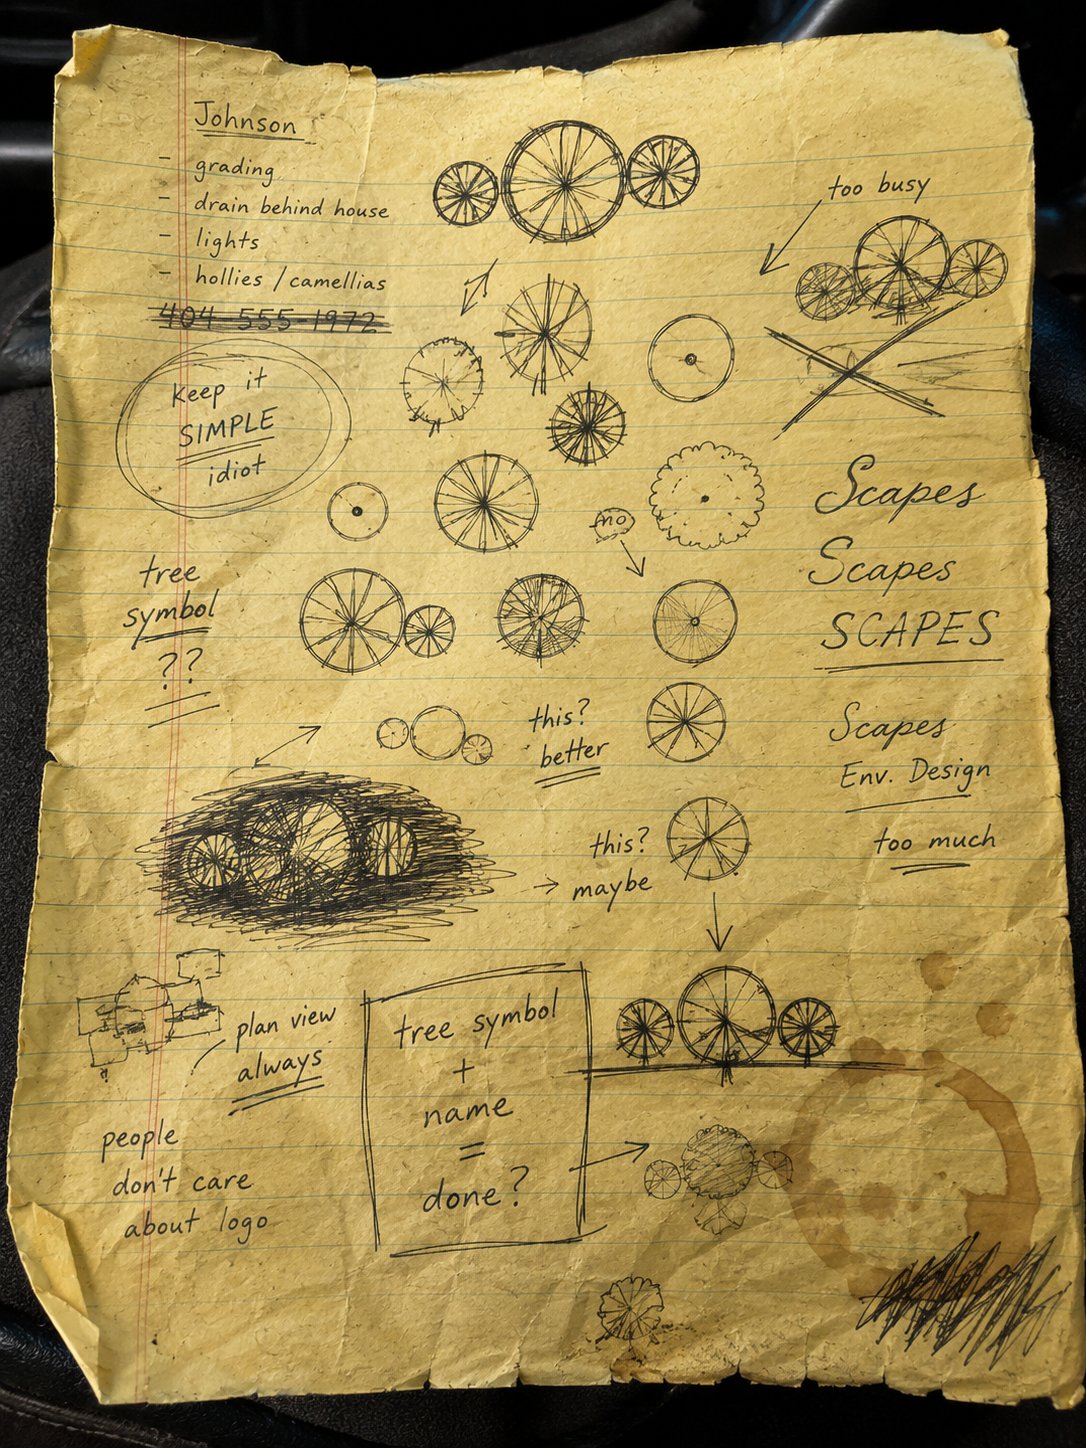 Johnson
- grading
- drain behind house
- lights
- hollies / camellias
404 555-1972
keep it
SIMPLE
idiot
too busy
no
tree
symbol
??
Scapes
Scapes
SCAPES
Scapes
Env. Design
too much
this?
better
this?
maybe
plan view
always
tree symbol
+
name
=
done?
people
don't care
about logo